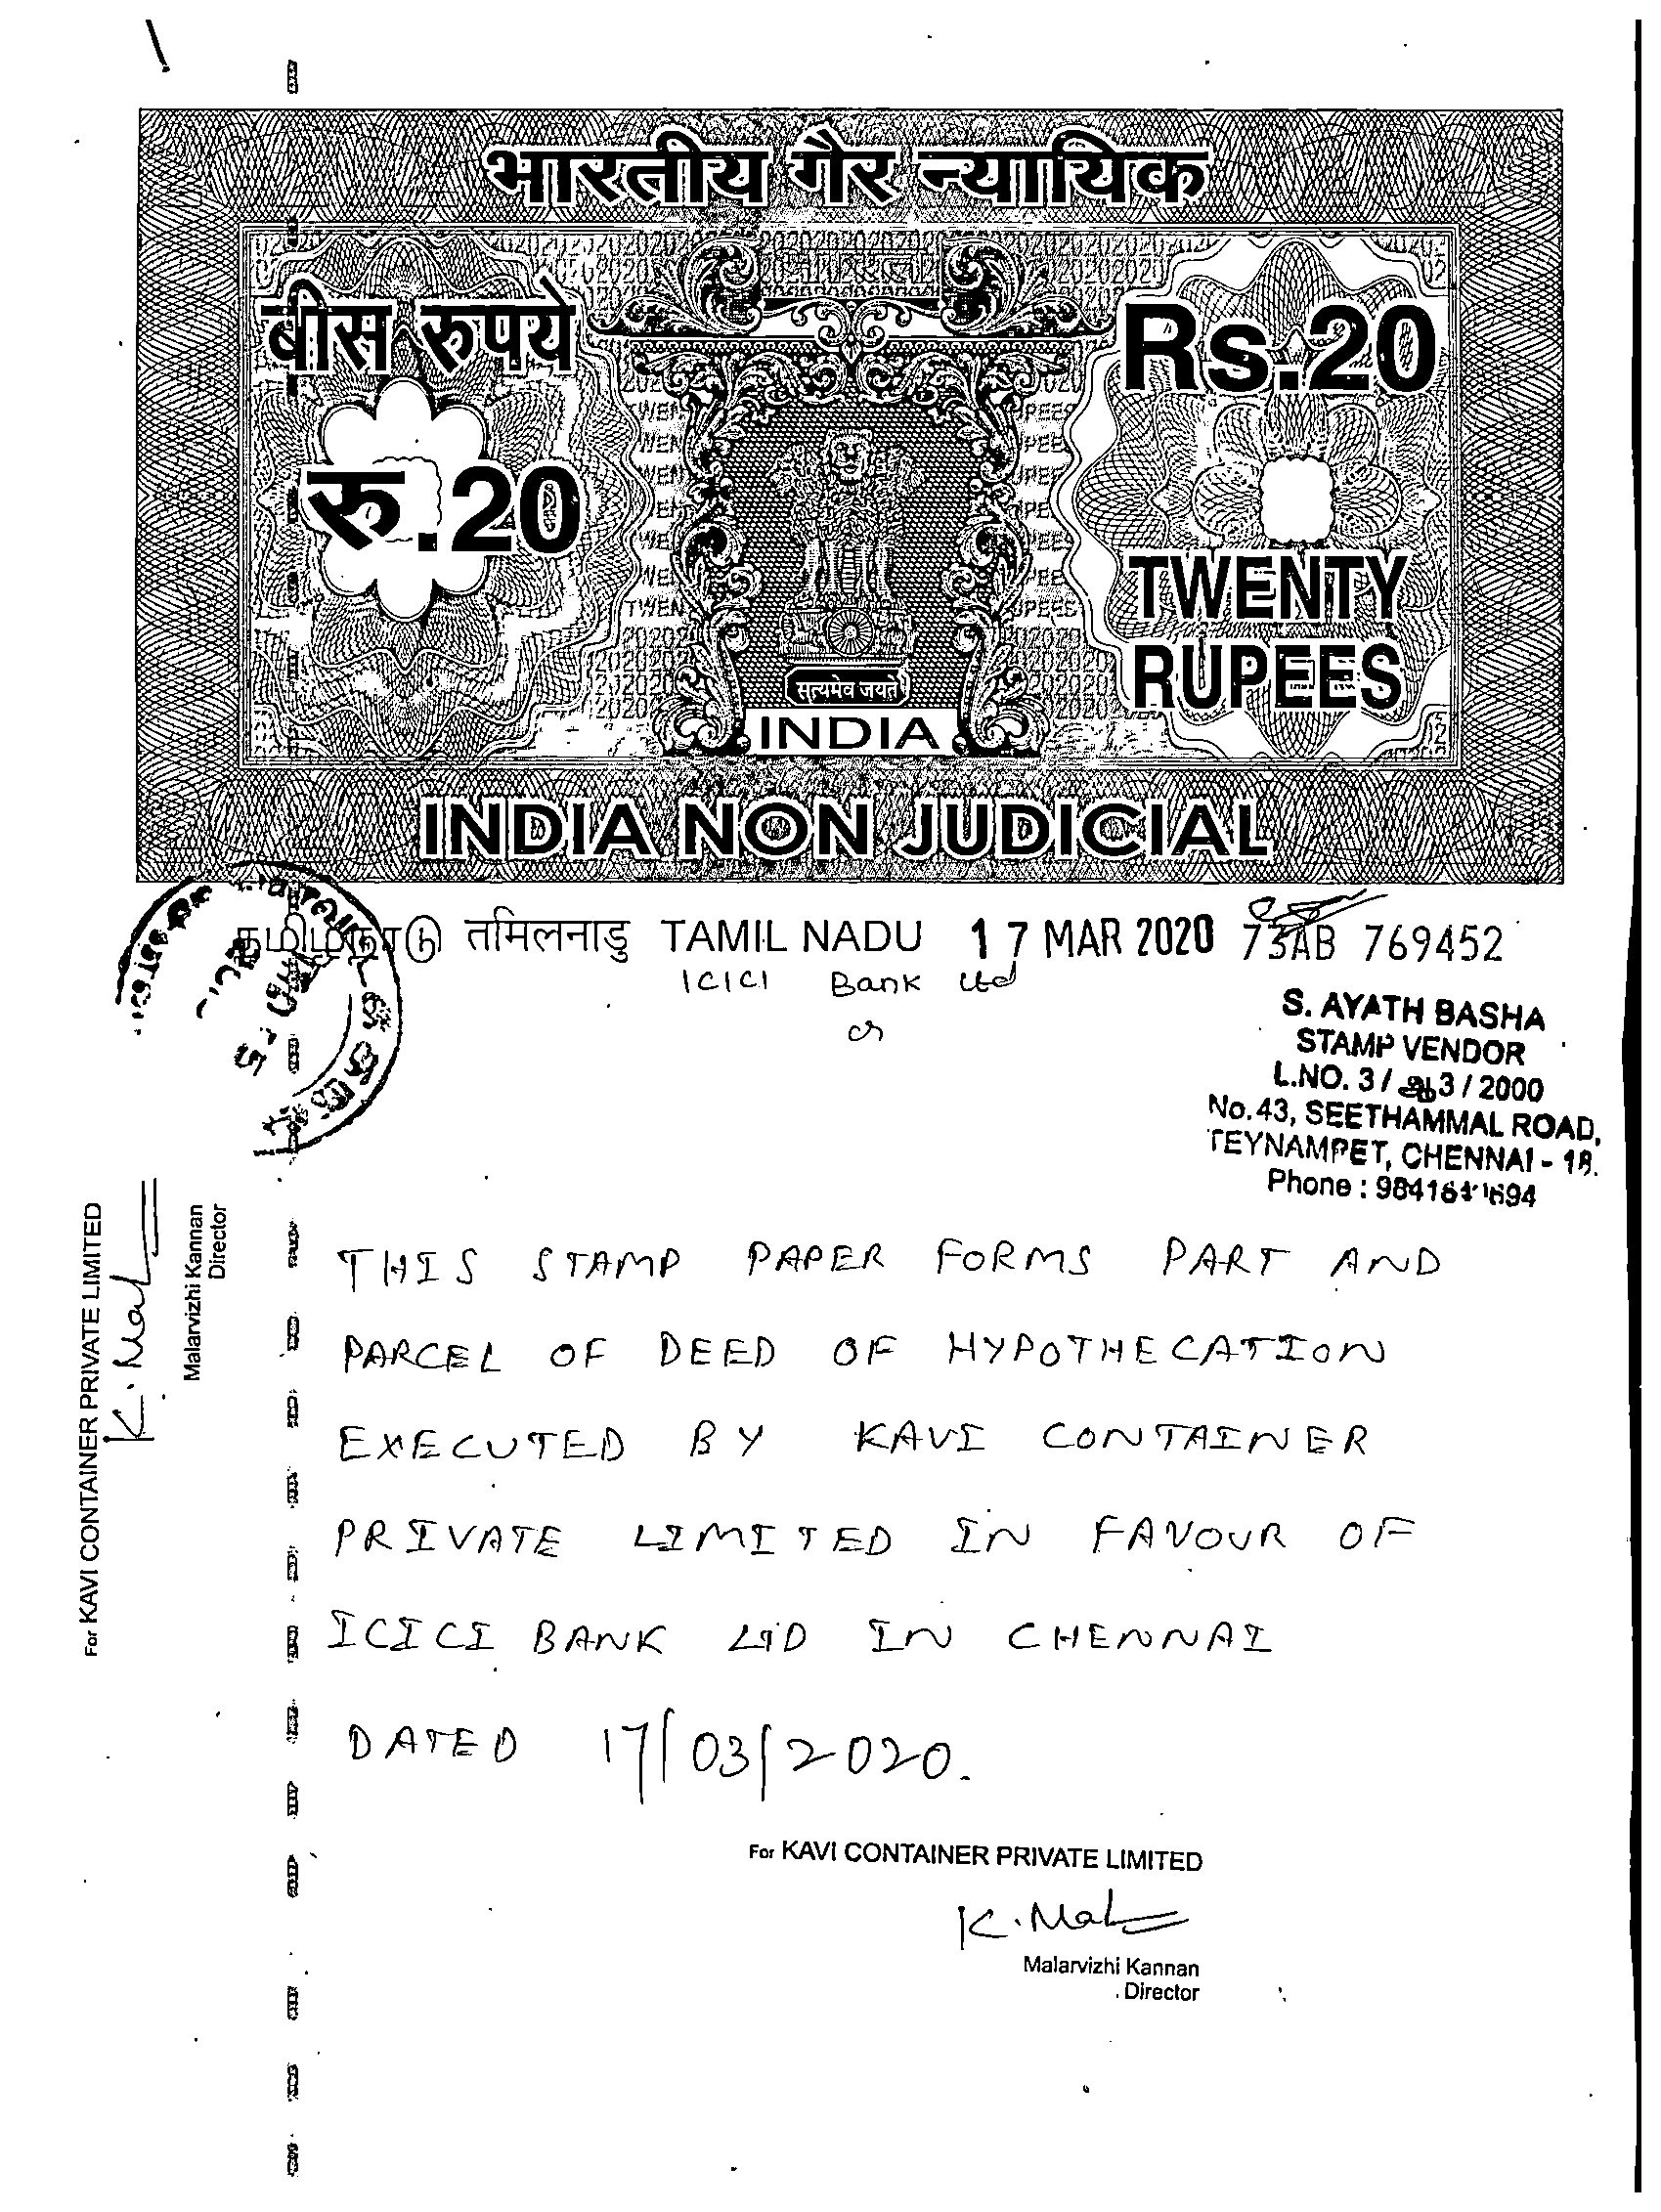 भारतीय गैर न्यायिक
बीस रुपये
रु.20
Rs.20
TWENTY
RUPEES
सत्यमेव जयते
INDIA
INDIA NON JUDICIAL
தமிழ்நாடு तमिलनाडु TAMIL NADU 17 MAR 2020 73AB 769452
ICICI Bank Ltd
S. AYATH BASHA
STAMP VENDOR
L.NO. 3 / ஆ3 / 2000
No.43, SEETHAMMAL ROAD,
TEYNAMPET, CHENNAI - 18.
Phone :
For KAVI CONTAINER PRIVATE LIMITED
K. Mal
Malarvizhi Kannan
Director
THIS STAMP PAPER FORMS PART AND
PARCEL OF DEED OF HYPOTHECATION
EXECUTED BY KAVI CONTAINER
PRIVATE LIMITED IN FAVOUR OF
ICICI BANK LTD IN CHENNAI
DATED 17/03/2020.
For KAVI CONTAINER PRIVATE LIMITED
K. Mal
Malarvizhi Kannan
Director